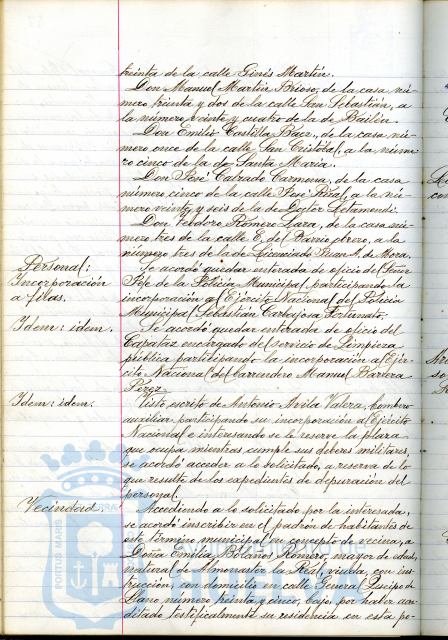 treinta de la calle Ginés Martín.
Don Manuel Martín Brioso, de la casa nú-
mero treinta y dos de la calle San Sebastián, a
la número veinte y cuatro de la de Bailén.
Don Emilio Castilla Baez, de la casa nú-
mero once de la calle San Cristóbal, a la núme-
ro cinco de la de Santa María.
Don José Calzado Carmona, de la casa
número cinco de la calle José Rizal, a la nú-
mero veinte y seis de la de Doctor Letamendi.
Don Teodoro Romero Lara, de la casa nú-
mero tres de la calle E, del Barrio obrero, a la
número tres de la de Licenciado Juan A. de Mora.
Personal:
Incorporación
a filas.
Se acordó quedar enterada de oficio del Señor
Jefe de la Policía Municipal, participando la
incorporación al Ejército Nacional del Policía
Municipal Sebastián Carbajosa Fortunato.
Idem: idem.
Se acordó quedar enterada de oficio del
Capataz encargado del servicio de Limpieza
pública participando la incorporación al Ejér-
cito Nacional del barrendero Manuel Barrera
Pérez.
Idem: idem.
Visto escrito de Antonio Avila Valera, bombero
auxiliar, participando su incorporación al Ejército
Nacional e interesando se le reserve la plaza
que ocupa mientras cumple sus deberes militares,
se acordó acceder a lo solicitado, a reserva de lo
que resulte de los expedientes de depuración del
personal.
Vecindad.
Accediendo a lo solicitado por la interesada,
se acordó inscribir en el padrón de habitantes de
este término municipal en concepto de vecina, a
Doña Emilia Bolaños Romero, mayor de edad,
natural de Almonaster la Real, viuda, con ins-
trucción, con domicilio en calle General Queipo de
Llano, número treinta y cinco, bajo, por haber acre-
ditado testificalmente su residencia en esta po-
PORTUS MARIS